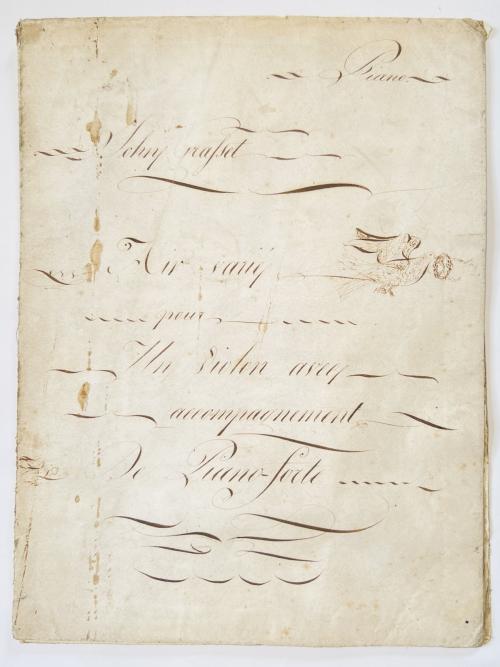 Piano
Air varié
pour
Un Violon avec
accompagnement
De Piano-forte